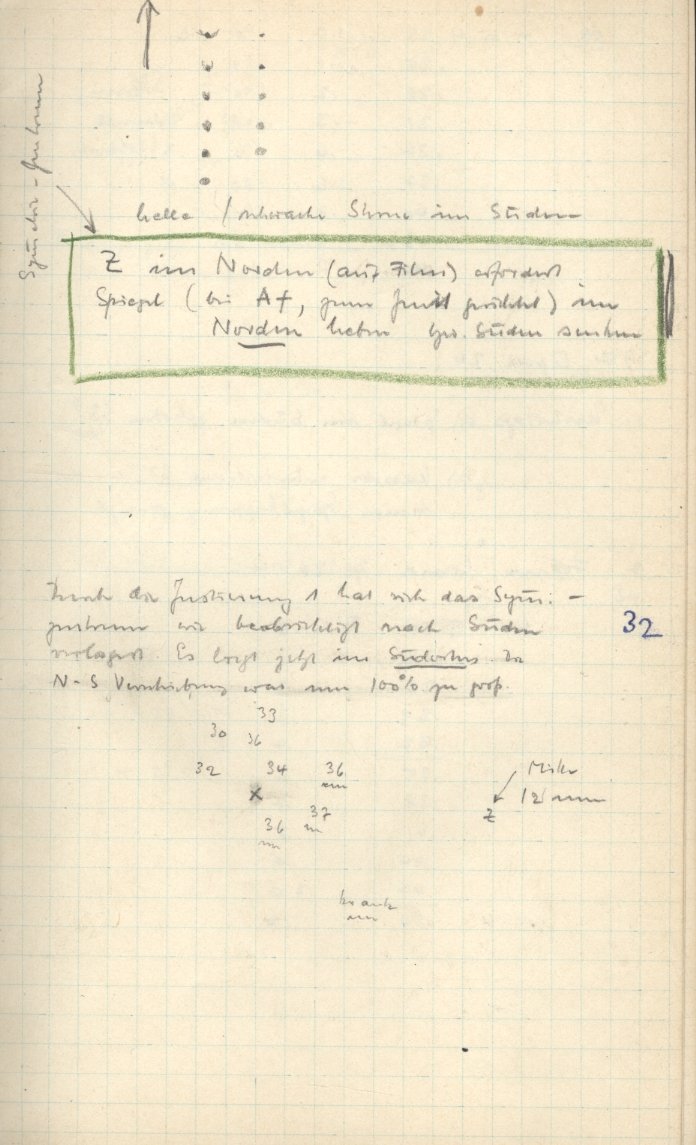 helle / schwache Sterne im Süden
Z im Norden (auf Film) erfordert
Spiegel (bei Af, zum gerichtet) im
Norden heben bzw. Süden senken
Durch die Justierung 1 hat sich das Sym. -
zentrum wie beabsichtigt nach Süden
verlagert. Es liegt jetzt im Südosten. Die
N-S Verschiebung war um 100% zu groß.
32
33
30 36
32 34 36
x
37
36
Mitte
12 mm
Z